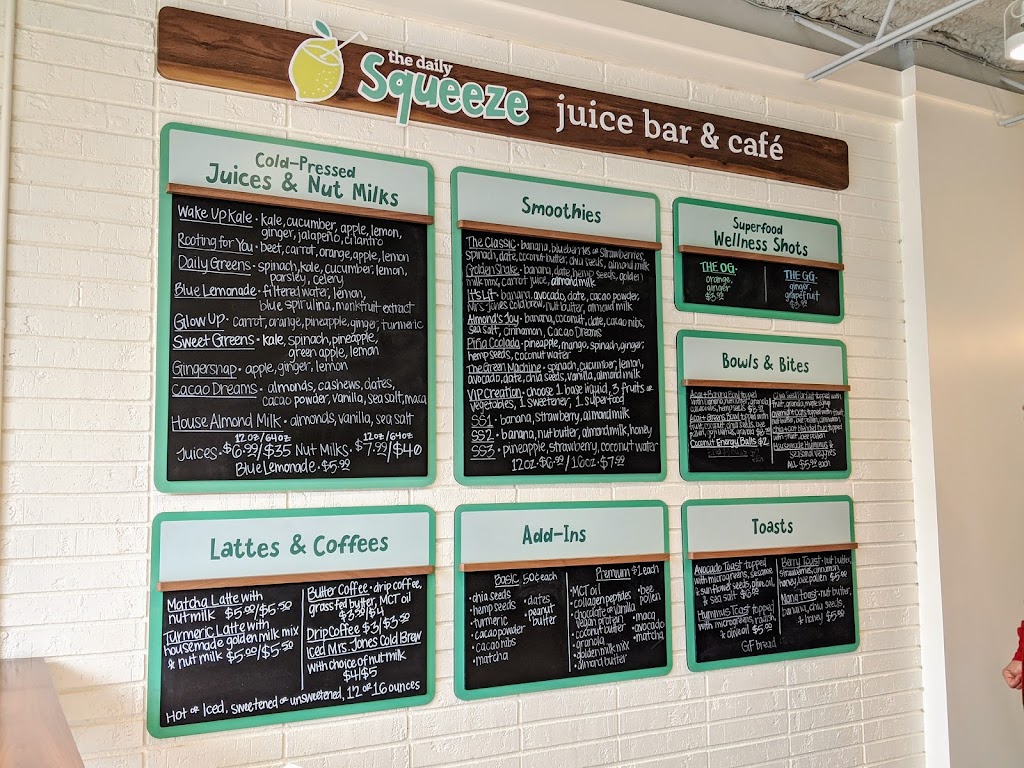 the daily
Squeeze juice bar & café
Cold-Pressed
Juices & Nut Milks
Wake Up Kale · kale, cucumber, apple, lemon,
ginger, jalapeño, cilantro
Rooting for You · beet, carrot, orange, apple, lemon
Daily Greens · spinach, kale, cucumber, lemon,
parsley, celery
Blue Lemonade · filtered water, lemon,
blue spirulina, monkfruit extract
Glow Up · carrot, orange, pineapple, ginger, turmeric
Sweet Greens · kale, spinach, pineapple,
green apple, lemon
Gingersnap · apple, ginger, lemon
Cacao Dreams · almonds, cashews, dates,
cacao powder, vanilla, sea salt, maca
House Almond Milk · almonds, vanilla, sea salt
12 oz / 64 oz 12 oz / 64 oz
Juices · $6.99/$35 Nut Milks · $7.99/$40
Blue Lemonade · $5.99
Smoothies
The Classic · banana, blueberries or strawberries,
spinach, date, coconut butter, chia seeds, almond milk
Golden Shake · banana, date, hemp seeds, golden
milk mix, carrot juice, almond milk
It's Lit · banana, avocado, date, cacao powder,
Mrs. Jones cold brew, nut butter, almond milk
Almond's Joy · banana, coconut, date, cacao nibs,
sea salt, cinnamon, Cacao Dreams
Piña Coolada · pineapple, mango, spinach, ginger,
hemp seeds, coconut water
The Green Machine · spinach, cucumber, lemon,
avocado, date, chia seeds, vanilla, almond milk
VIP Creation · choose 1 base liquid, 5 fruits or
vegetables, 1 sweetener, 1 superfood
SS1 · banana, strawberry, almond milk
SS2 · banana, nut butter, almond milk, honey
SS3 · pineapple, strawberry, coconut water
12 oz · $6.99 / 16 oz · $7.99
Superfood
Wellness Shots
THE OG ·
orange,
ginger
$3.99
THE GG ·
ginger,
grapefruit
$3.99
Bowls & Bites
Coconut Energy Balls $2
seasonal veggies
ALL $5.99 each
Lattes & Coffees
Matcha Latte with
nut milk $5.00/$5.50
Turmeric Latte with
housemade golden milk mix
& nut milk $5.00/$5.50
Butter Coffee · drip coffee,
grass fed butter, MCT oil
$3.50/$4
Drip Coffee $3/$3.50
Iced Mrs. Jones Cold Brew
with choice of nut milk
$4/$5
Hot or Iced, sweetened or unsweetened, 12 or 16 ounces
Add-Ins
Basic 50¢ each
· chia seeds
· hemp seeds
· turmeric
· cacao powder
· cacao nibs
· matcha
· dates
· peanut
butter
Premium $1 each
· MCT oil
· collagen peptides
· chocolate or vanilla
vegan protein
· coconut butter
· granola
· golden milk mix
· almond butter
· bee
pollen
· maca
· avocado
· matcha
Toasts
Avocado Toast topped
with microgreens, sesame
& sunflower seeds, olive oil,
& sea salt $6.99
Hummus Toast topped
with microgreens, radish,
& olive oil $5.99
Berry Toast · nut butter,
strawberries, cinnamon,
honey, bee pollen $5.99
Nana Toast · nut butter,
banana, chia seeds,
& honey $5.99
GF bread